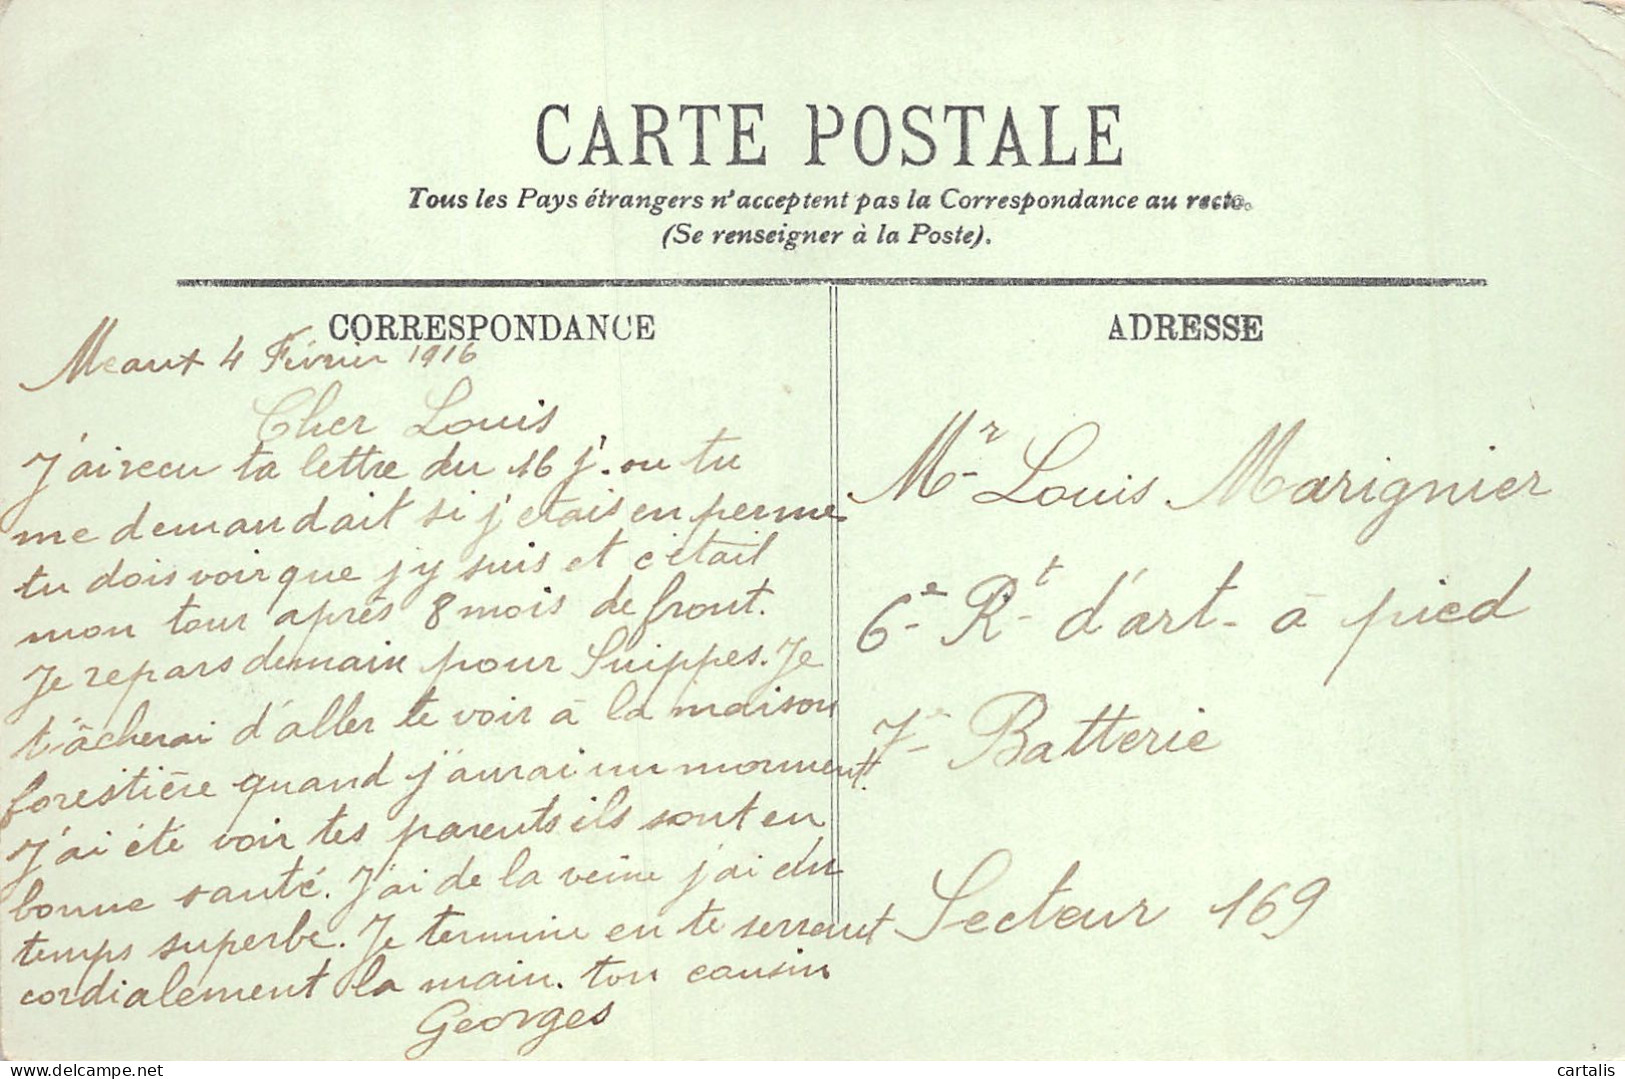 CARTE POSTALE
Tous les Pays étrangers n'acceptent pas la Correspondance au recto.
(Se renseigner à la Poste).
CORRESPONDANCE
Meaux 4 Février 1916
Cher Louis
J'ai recu ta lettre du 16 j. ou tu
me demandait si j'etais en perme
tu dois voir que j'y suis et c'était
mon tour après 8 mois de front.
Je repars demain pour Suippes. Je
tâcherai d'aller te voir à la maison
forestière quand j'aurai un moment.
J'ai été voir tes parents ils sont en
bonne santé. J'ai de la veine j'ai du
temps superbe. Je termine en te serrant
cordialement la main. ton cousin
Georges
ADRESSE
Mr Louis Marignier
6e Rt d'art. à pied
7e Batterie
Secteur 169
delcampe.net
cartalis